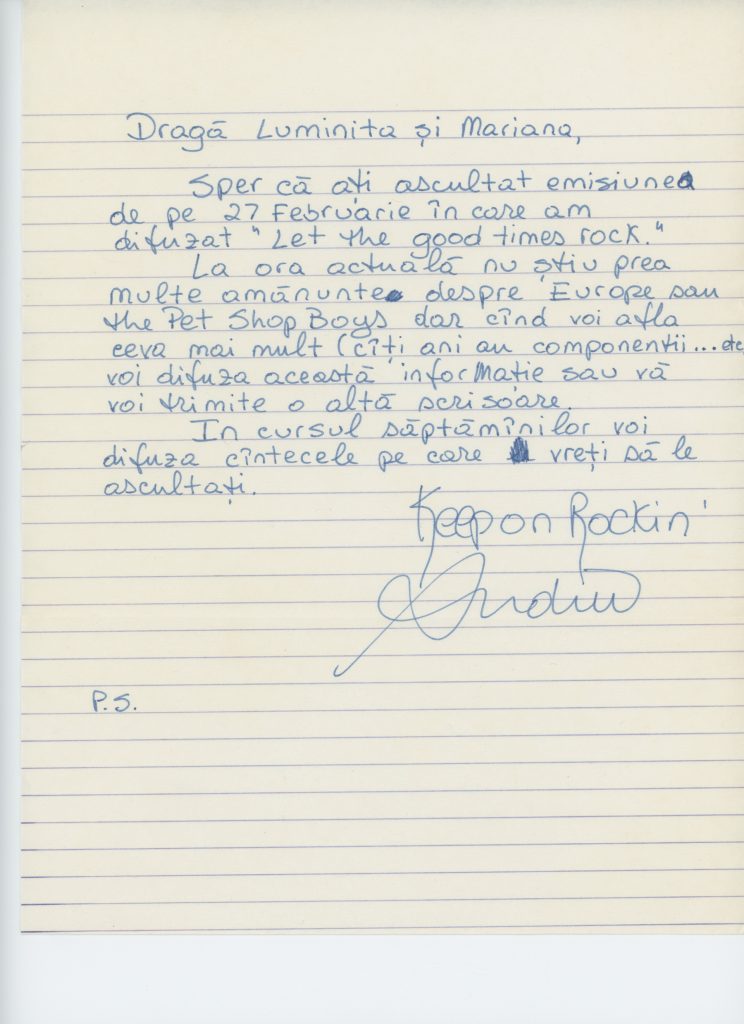 Dragă Luminita și Mariana,
Sper că ați ascultat emisiunea
de pe 27 Februarie în care am
difuzat "Let the good times rock."
La ora actuală nu știu prea
multe amănunte despre Europe sau
the Pet Shop Boys dar cînd voi afla
ceva mai mult (cîți ani au componentii... etc
voi difuza această informație sau vă
voi trimite o altă scrisoare.
In cursul săptămînilor voi
difuza cîntecele pe care vreți să le
ascultați.
Keep on Rockin'
Andrei
P.S.